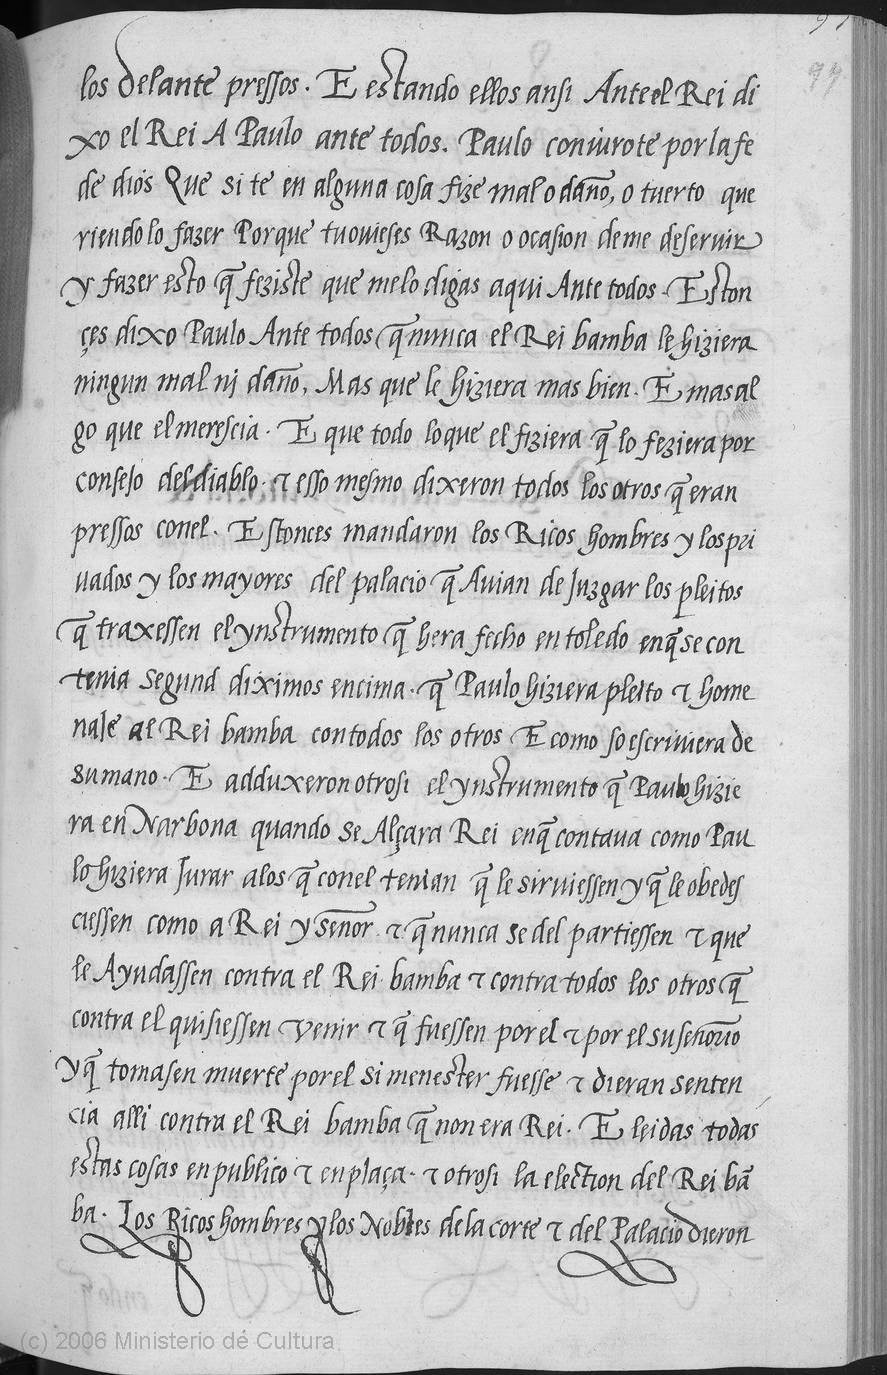 97
97
los delante pressos. E estando ellos ansi Ante el Rei di
xo el Rei A Paulo ante todos. Paulo coniurote por la fe
de dios Que si te en alguna cosa fize mal o daño, o tuerto que
riendolo fazer Porque tuvieses Razon o ocasion de me deservir
y fazer esto q̃ feziste que me lo digas aqui Ante todos. Eston
çes dixo Paulo Ante todos q̃ nunca el Rei bamba le hiziera
ningun mal nj daño, Mas que le hiziera mas bien. E mas al
go que el merescia. E que todo lo que el fiziera q̃ lo feziera por
consejo del diablo. τ esso mesmo dixeron todos los otros q̃ eran
pressos conel. Estonces mandaron los Ricos hombres y los pri
uados y los mayores del palacio q̃ Auian de Juzgar los pleitos
q̃ traxessen el ynstrumento q̃ hera fecho en toledo enq̃ se con
tenia segund diximos encima. q̃ Paulo hiziera pleito τ home
naje al Rei bamba con todos los otros E como so escriuiera de
su mano. E adduxeron otrosi el ynstrumento q̃ Paulo hizie
ra en Narbona quando se Alçara Rei enq̃ contaua como Pau
lo hiziera Jurar a los q̃ conel tenian q̃ le siruiessen y q̃ le obedes
ciessen como a Rei y señor τ q̃ nunca se del partiessen τ que
le Ayudassen contra el Rei bamba τ contra todos los otros q̃
contra el quisiessen venir τ q̃ fuessen por el τ por el su señorio
y q̃ tomasen muerte por el si menester fuesse τ dieran senten
cia alli contra el Rei bamba q̃ non era Rei. E leidas todas
estas cosas en publico τ en plaça. τ otrosi la election del Rei bã
ba. Los Ricos hombres y los Nobles de la corte τ del Palacio dieron
(c) 2006 Ministerio de Cultura